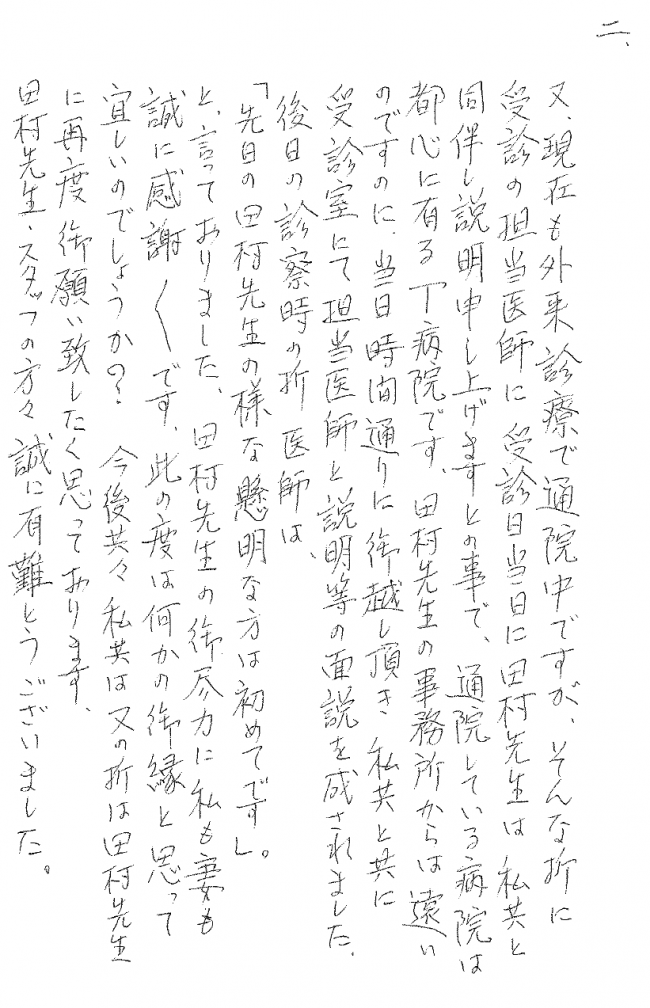 二、
又、現在も外来診療で通院中ですが、そんな折に
受診の担当医師に受診日当日に田村先生は私共と
同伴し説明申し上げますとの事で、通院している病院は
都心に有るT病院です、田村先生の事務所からは遠い
のですのに、当日時間通りに御越し頂き私共と共に
受診室にて担当医師と説明等の面説を成されました、
後日の診察時の折医師は、
「先日の田村先生の様な懸明な方は初めてです」。
と、言っておりました、田村先生の御尽力に私も妻も
誠に感謝〱です、此の度は何かの御縁と思って
宜しいのでしょうか？今後共々私共は又の折は田村先生
に再度御願い致したく思っております、
田村先生・スタッフの方々誠に有難とうございました。